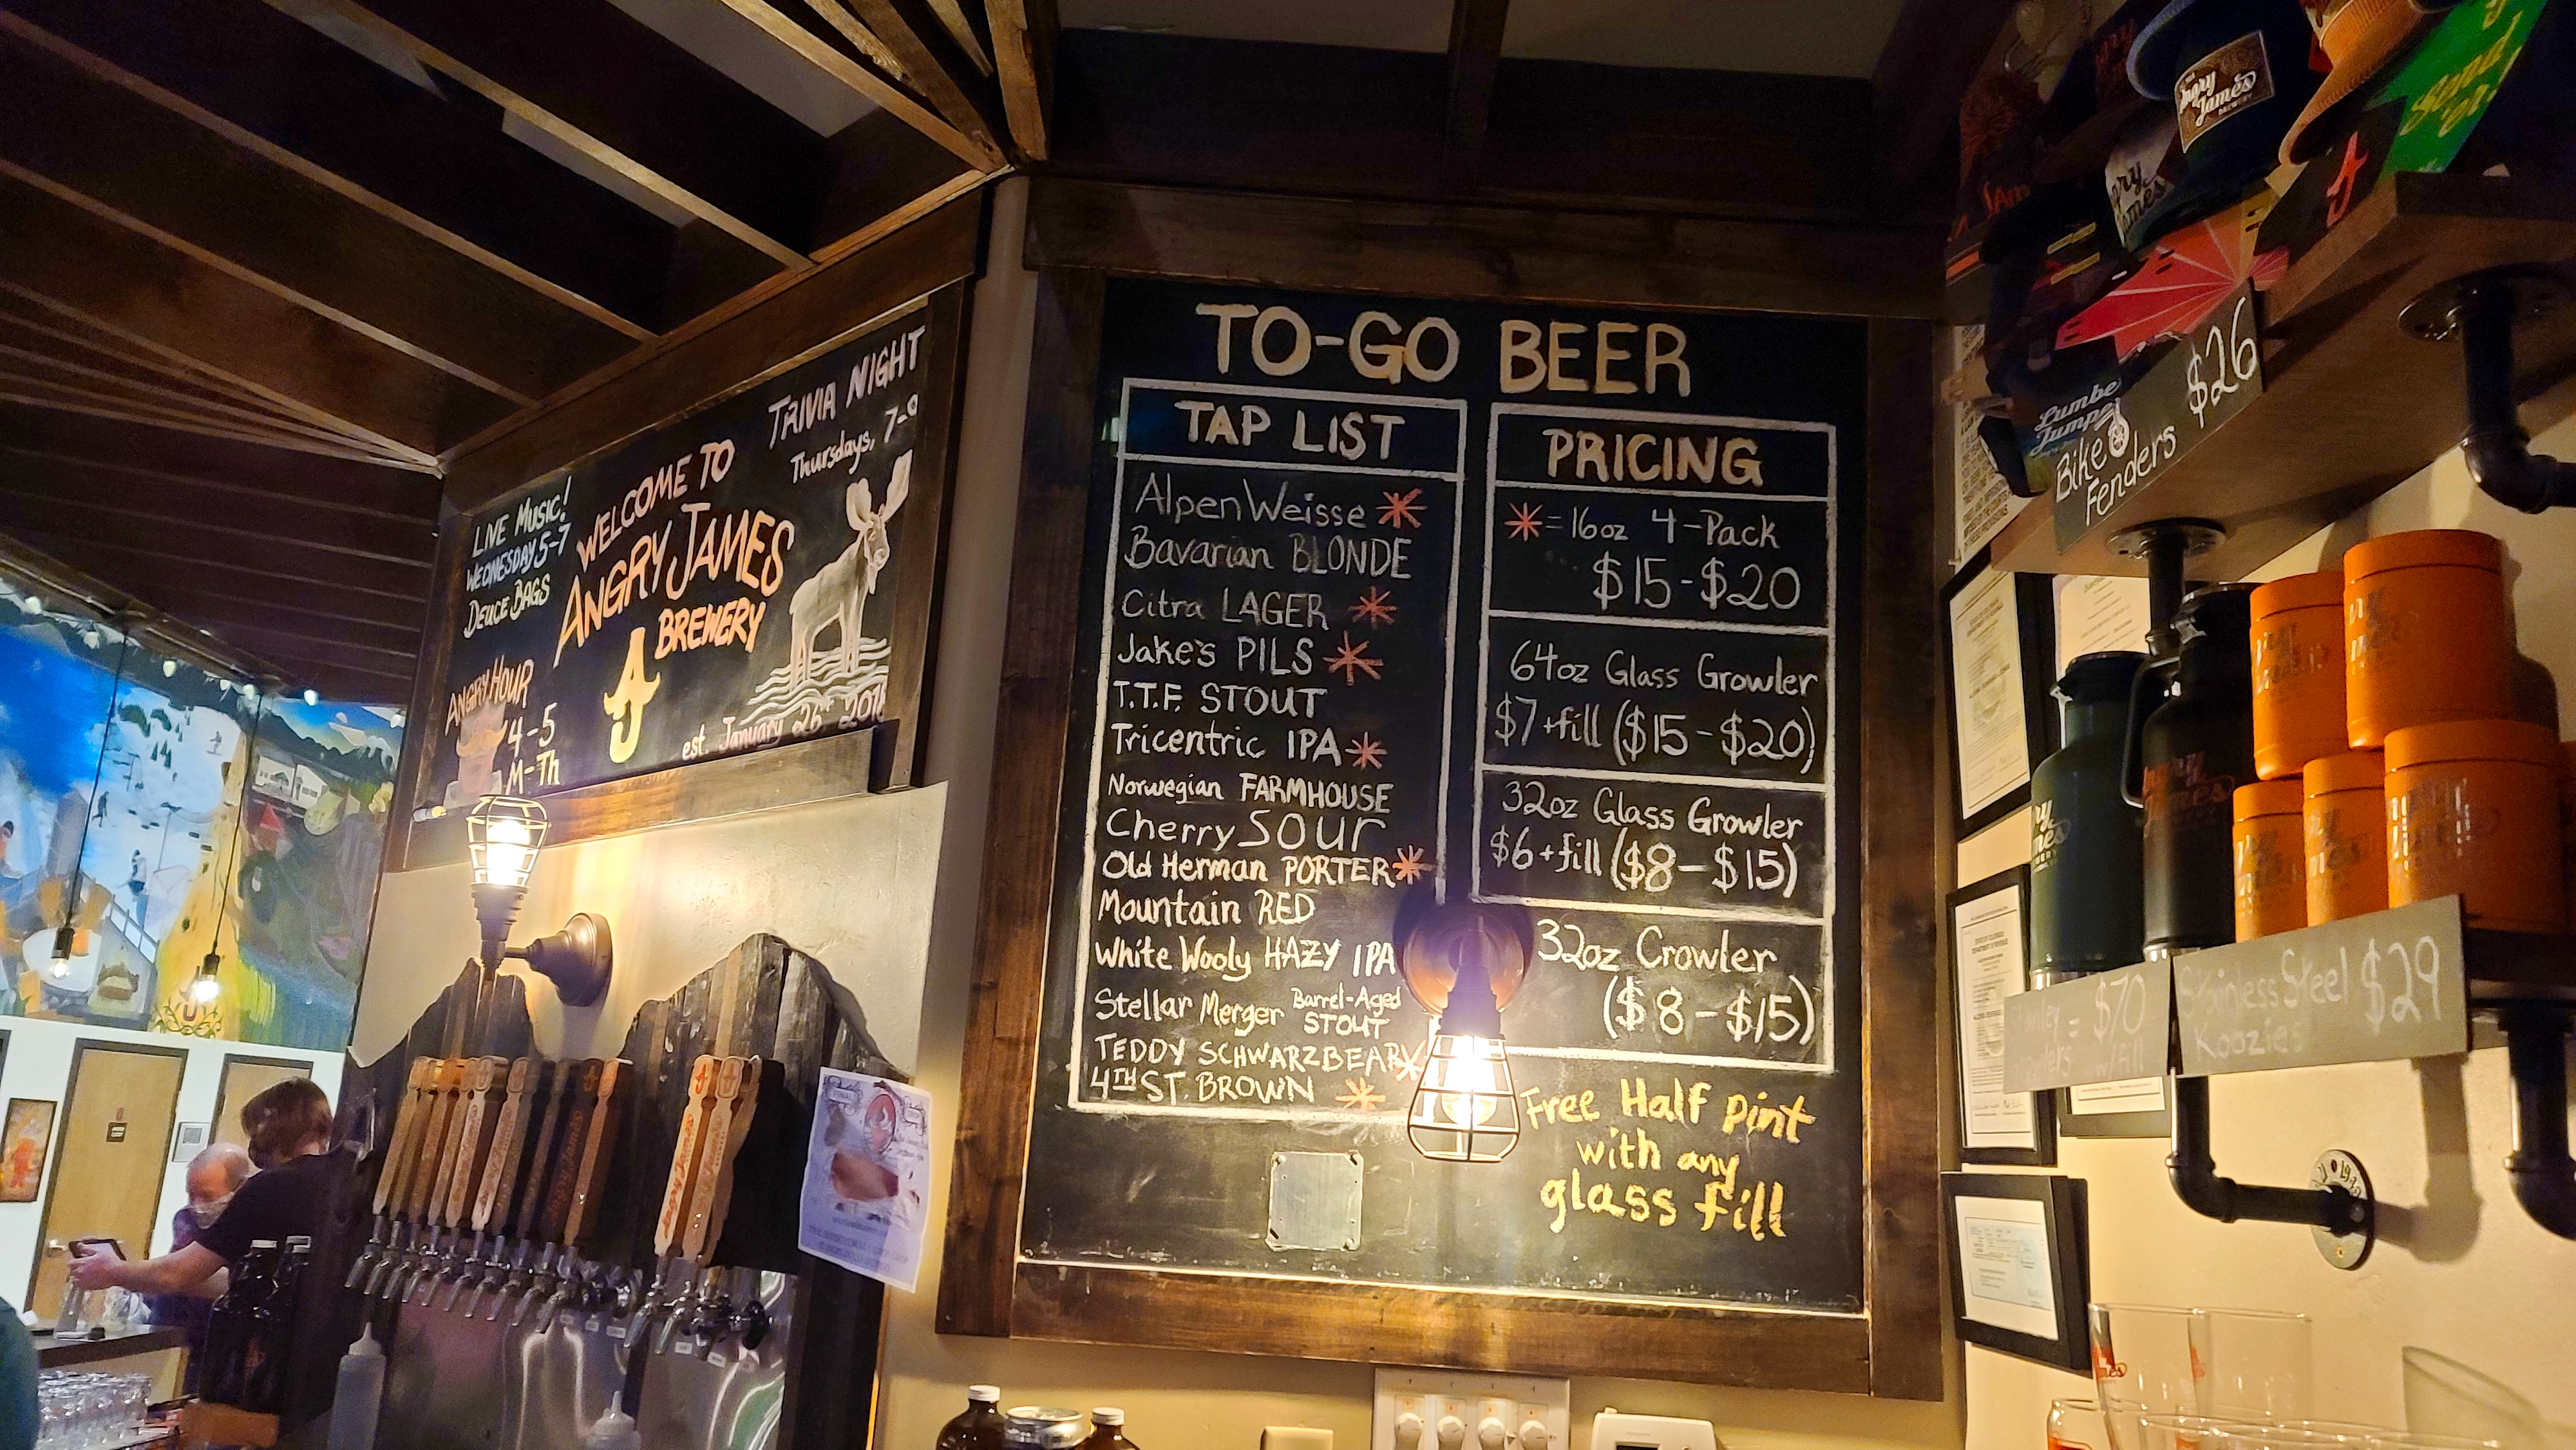 LIVE MUSIC!
WEDNESDAY 5-7
DEUCE BAGS
ANGRY HOUR
4-5
M-Th
WELCOME TO
ANGRY JAMES
BREWERY
est. January 26th 2018
TRIVIA NIGHT
Thursdays, 7-9
TO-GO BEER
TAP LIST
Alpen Weisse *
Bavarian BLONDE
Citra LAGER *
Jake's PILS *
T.T.F. STOUT
Tricentric IPA *
Norwegian FARMHOUSE
Cherry SOUR
Old Herman PORTER *
Mountain RED
White Wooly HAZY IPA
Stellar Merger Barrel-Aged
STOUT
TEDDY SCHWARZBEAR *
4TH ST. BROWN *
PRICING
* = 16oz 4-Pack
$15-$20
64oz Glass Growler
$7+fill ($15-$20)
32oz Glass Growler
$6+fill ($8-$15)
32oz Crowler
($8-$15)
Free Half pint
with any
glass fill
Angry
James
BREWERY
Bike
Fenders $26
$70
w/fill
Stainless Steel $29
Koozies